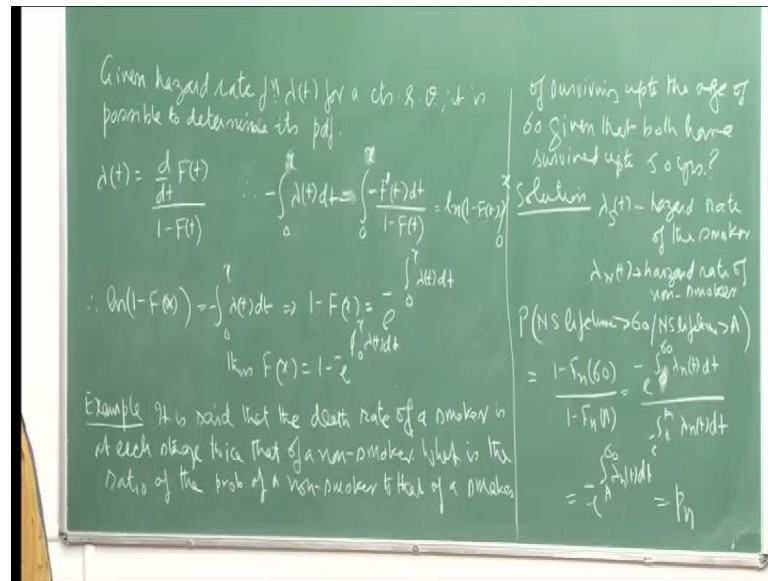 Given hazard rate fn λ(t) for a cts. r. v., it is
possible to determine its pdf.
λ(t) = d/dt F(t) / 1-F(t) ∴ -∫₀ˣ λ(t)dt = ∫₀ˣ -f(t)dt / 1-F(t) = ln(1-F(t))|₀ˣ
∴ ln(1-F(x)) = -∫₀ˣ λ(t)dt ⇒ 1-F(x) = e^-∫₀ˣ λ(t)dt
thus F(x) = 1-e^-∫₀ˣ λ(t)dt
Example It is said that the death rate of a smoker is
at each stage twice that of a non-smoker. What is the
ratio of the prob of a non-smoker to that of a smoker
of surviving upto the age of
60 given that both have
survived upto 50 yrs.?
Solution λs(t) - hazard rate
of the smoker
λN(t) → hazard rate of
non-smoker
P(NS lifetime>60/NS lifetime>A)
= 1-Fn(60) / 1-Fn(A) = e^-∫₀⁶⁰ λn(t)dt / e^-∫₀ᴬ λn(t)dt
= e^-∫_A^60 λn(t)dt = Pn